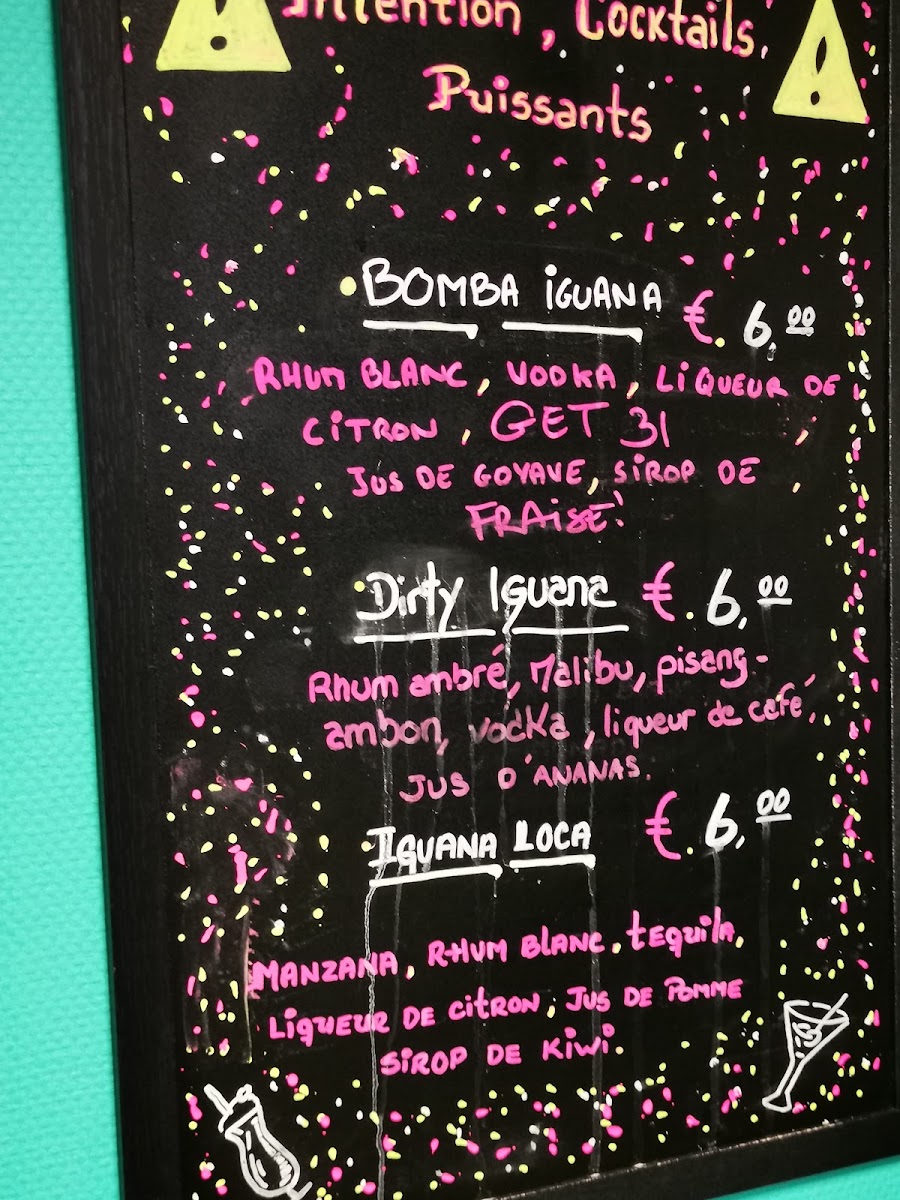 Attention, Cocktails,
Puissants
BOMBA iGUANA €. 6,00
RHUM BLANC, VODKA, LiQUEUR DE
CiTRON, GET 31
JUS DE GOYAVE, SiROP DE
FRAiSE!
Dirty Iguana €. 6,00
Rhum ambré, Malibu, pisang-
ambon, vodka, liqueur de café,
JUS D'ANANAS.
IGUANA LOCA €. 6,00
MANZANA, RHUM BLANC, tEquila,
LiQUEUR DE CiTRON, JUS DE POMME
SiROP DE KiWi.